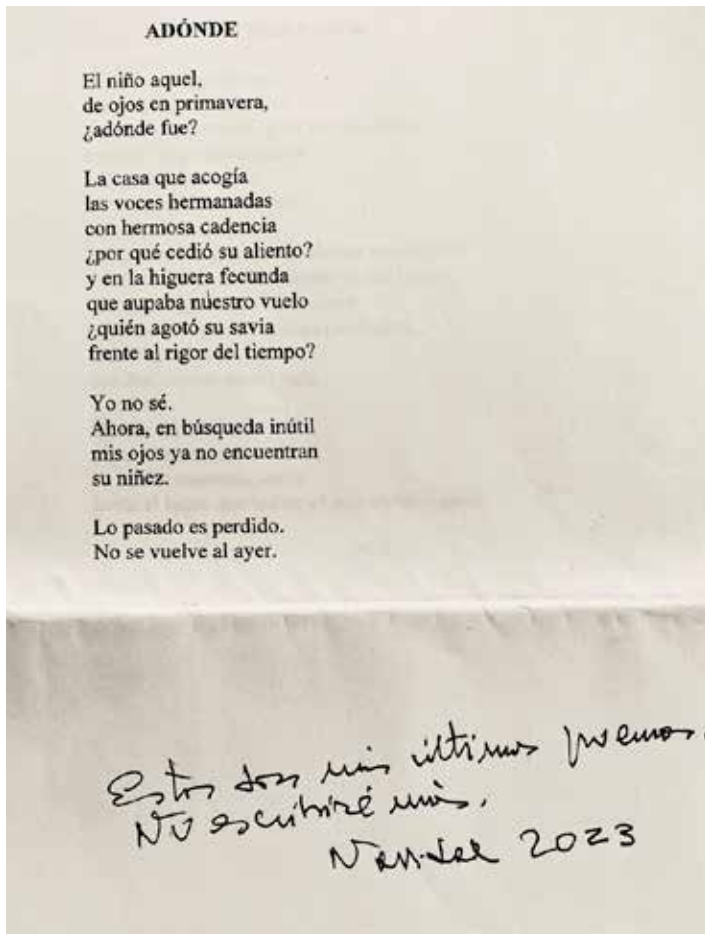 ADÓNDE
El niño aquel,
de ojos en primavera,
¿adónde fue?
La casa que acogía
las voces hermanadas
con hermosa cadencia
¿por qué cedió su aliento?
y en la higuera fecunda
que aupaba nuestro vuelo
¿quién agotó su savia
frente al rigor del tiempo?
Yo no sé.
Ahora, en búsqueda inútil
mis ojos ya no encuentran
su niñez.
Lo pasado es perdido.
No se vuelve al ayer.
Estos son mis últimos poemas.
No escribiré más.
2023